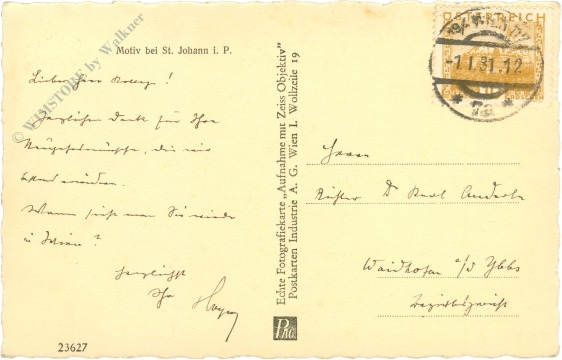 Motiv bei St. Johann i. P.
© WIMSTORE by Walkner
Lieber Herr Kollege!
Herzlichen Dank für Ihre
Neujahrswünsche, die wir
bestens erwidern.
Wann sieht man Sie wieder
in Wien?
Herzlichst
Ihr
23627
Echte Fotografiekarte „Aufnahme mit Zeiss Objektiv”
Postkarten Industrie A. G. Wien I. Wollzeile 19
PAG
ÖSTERREICH
WIEN
-1.I.31.12
* 7a *
10
GROSCHEN
Herrn
Richter Dr Karl
Waidhofen a/d Ybbs
Bezirksgericht